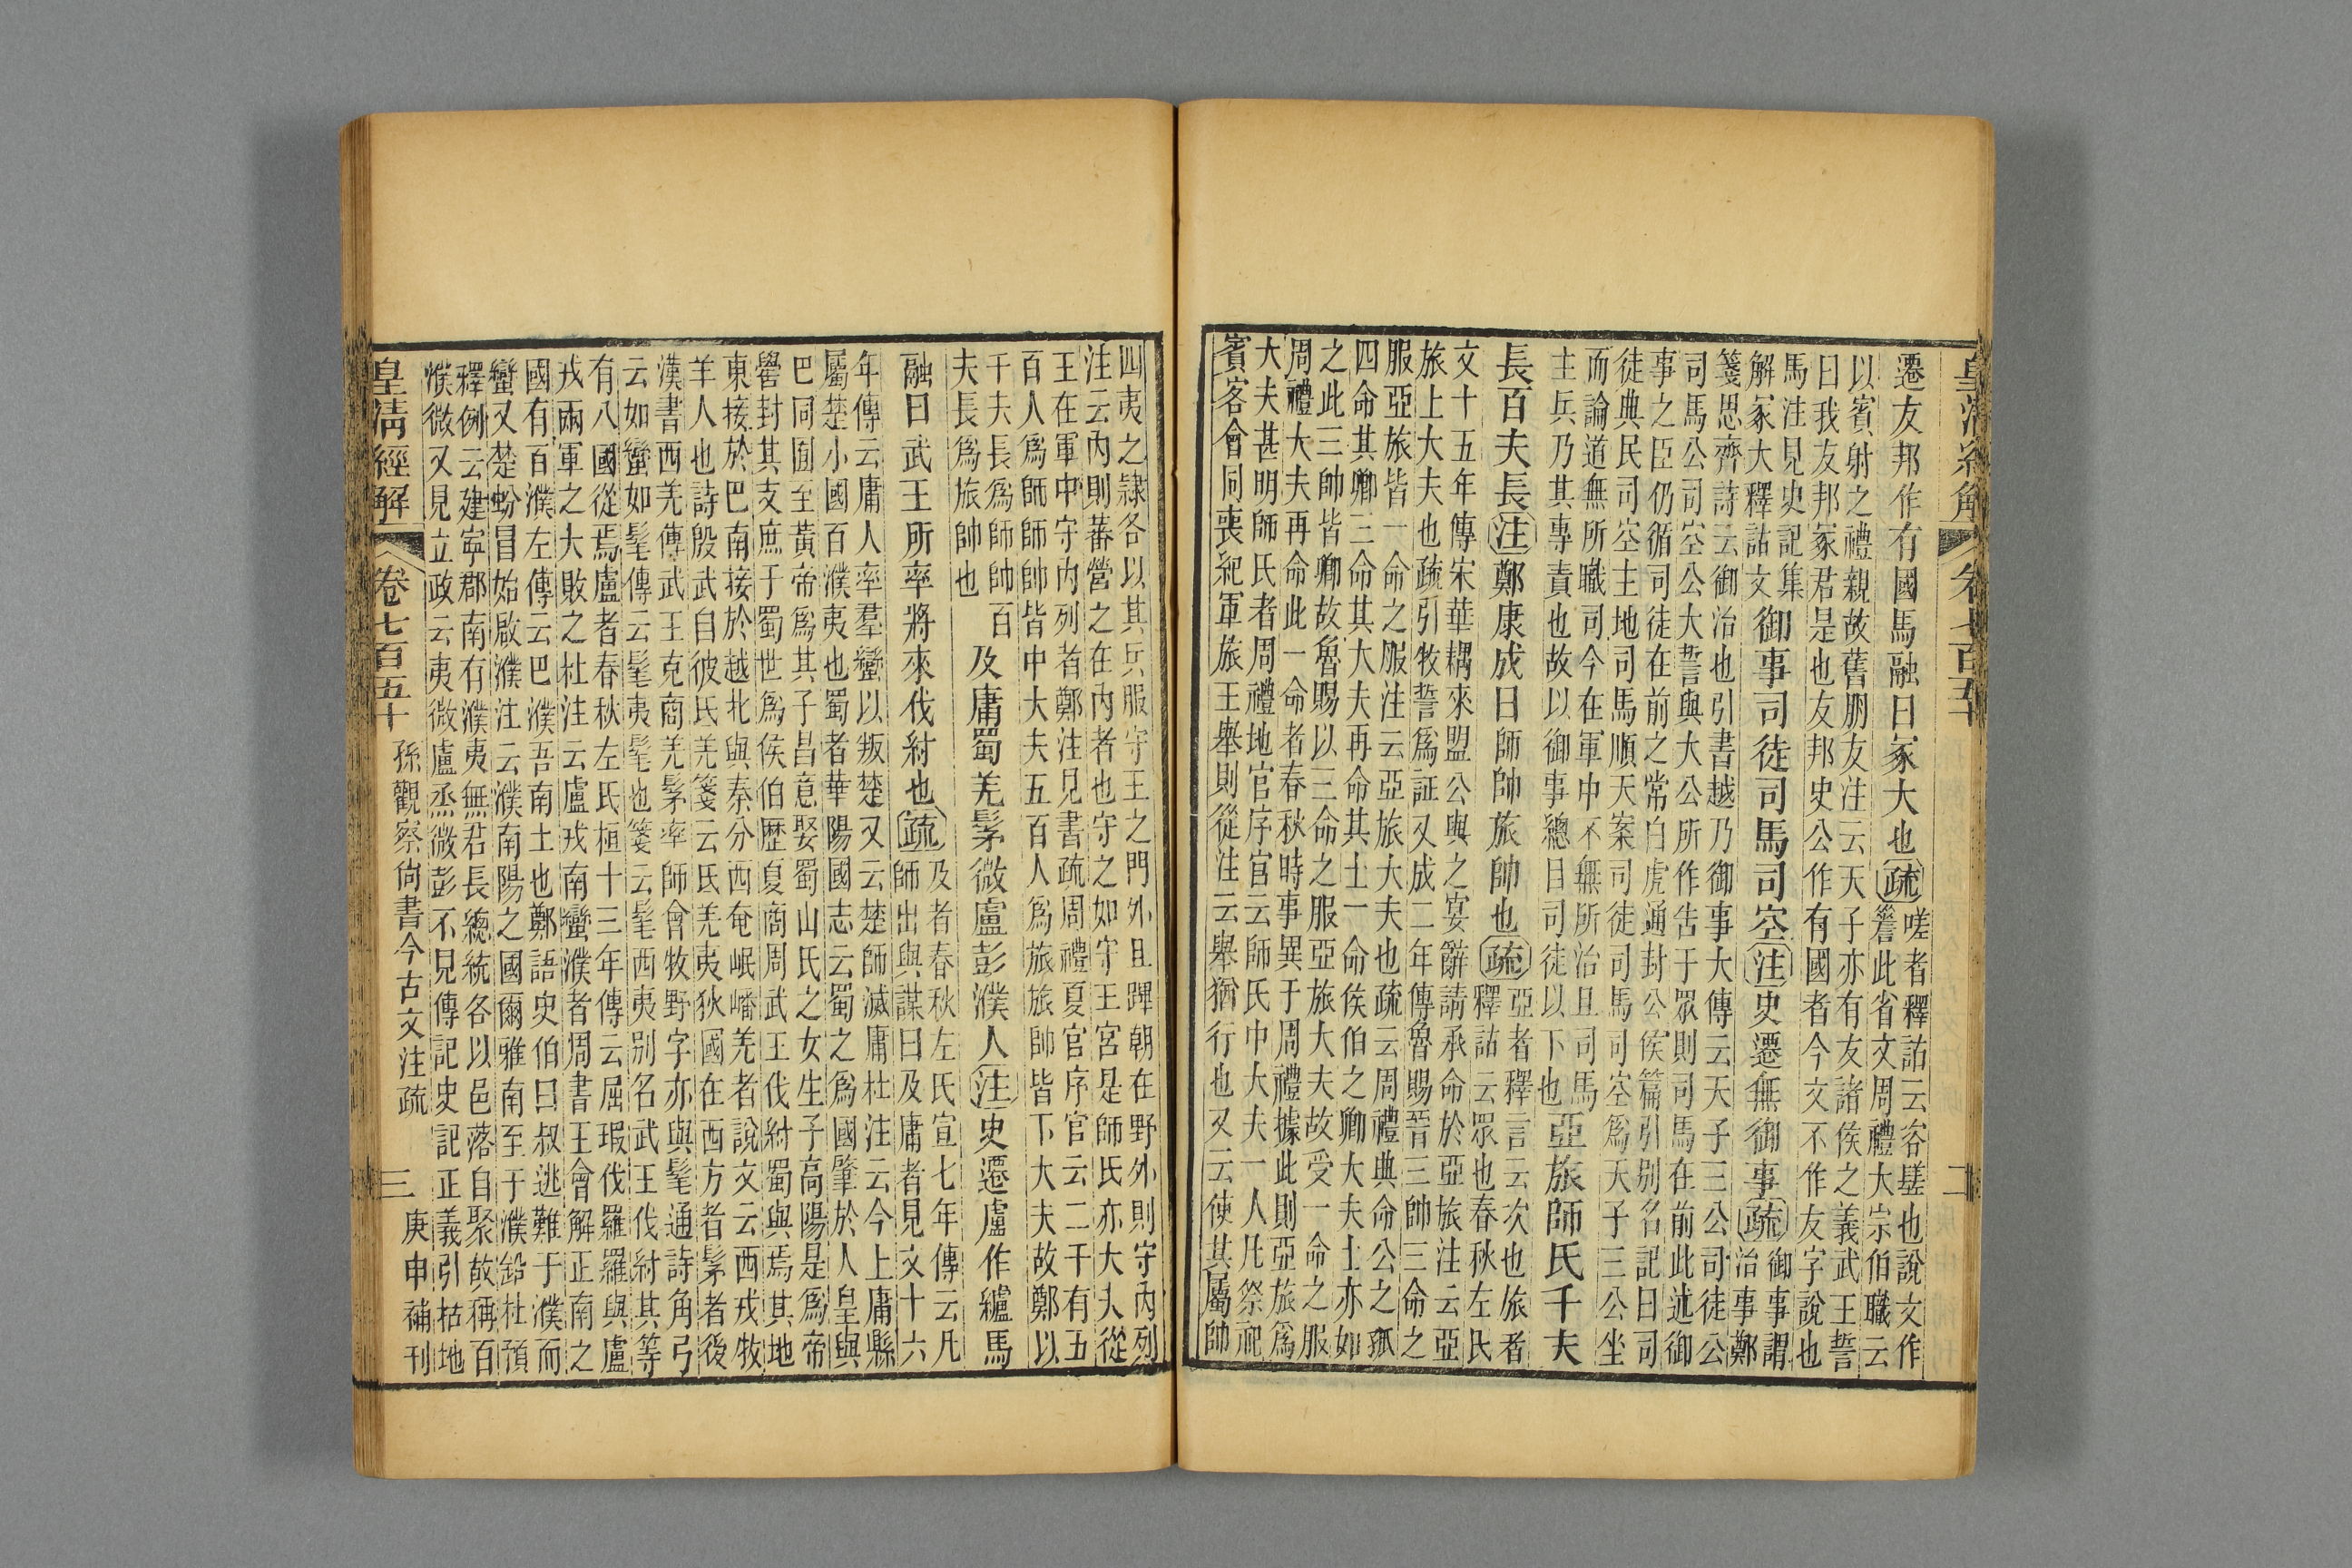 皇清經解 卷七百五十 二
遷友邦作有國馬融曰冢大也疏嗟者釋詁云咨嗟也說文作
此省文周禮大宗伯職云
以賓射之禮親故舊朋友注云天子亦有友諸侯之義武王誓
曰我友邦冢君是也友邦史公作有國者今文不作友字說也
馬注見史記集
解冢大釋詁文
御事司徒司馬司空注史遷無御事疏御事謂
治事鄭
箋思齊詩云御治也引書越乃御事大傳云天子三公司徒公
司馬公司空公大誓與大公所作告于眾則司馬在前此述御
事之臣仍循司徒在前之常白虎通封公侯篇引别名記曰司
徒典民司空主地司馬順天案司徒司馬司空爲天子三公坐
而論道無所職司今在軍中不無所治且司馬
主兵乃其專責也故以御事總目司徒以下也
亞旅師氏千夫
長百夫長注鄭康成曰師帥旅帥也疏亞者釋言云次也旅者
釋詁云眾也春秋左氏
文十五年傳宋華耦來盟公與之宴辭請承命於亞旅注云亞
旅上大夫也疏引牧誓爲証又成二年傳魯賜晉三帥三命之
服亞旅皆一命之服注云亞旅大夫也疏云周禮典命公之孤
四命其卿三命其大夫再命其士一命侯伯之卿大夫士亦如
之此三帥皆卿故魯賜以三命之服亞旅大夫故受一命之服
周禮大夫再命此一命者春秋時事異于周禮據此則亞旅爲
大夫甚明師氏者周禮地官序官云師氏中大夫一人凡祭祀
賓客會同喪紀軍旅王舉則從注云舉猶行也又云使其屬帥
四夷之隷各以其兵服守王之門外且蹕朝在野外則守內列
注云內則蕃營之在內者也守之如守王宮是師氏亦大夫從
王在軍中守內列者鄭注見書疏周禮夏官序官云二千有五
百人爲師師帥皆中大夫五百人爲旅旅帥皆下大夫故鄭以
千夫長爲師帥百
夫長爲旅帥也
及庸蜀羌髳微盧彭濮人注史遷盧作纑馬
融曰武王所率將來伐紂也疏及者春秋左氏宣七年傳云凡
師出與謀曰及庸者見文十六
年傳云庸人率羣蠻以叛楚又云楚師滅庸杜注云今上庸縣
屬楚小國百濮夷也蜀者華陽國志云蜀之爲國肇於人皇與
巴同囿至黃帝爲其子昌意娶蜀山氏之女生子高陽是爲帝
嚳封其支庶于蜀世爲侯伯歷夏商周武王伐紂蜀與焉其地
東接於巴南接於越北與秦分西奄岷嶓羌者說文云西戎牧
羊人也詩殷武自彼氐羌箋云氐羌夷狄國在西方者髳者後
漢書西羌傳武王克商羌髳率師會牧野字亦與髦通詩角弓
云如蠻如髦傳云髦夷髦也箋云髦西夷别名武王伐紂其等
有八國從焉盧者春秋左氏桓十三年傳云屈瑕伐羅羅與盧
戎兩軍之大敗之杜注云盧戎南蠻濮者周書王會解正南之
國有百濮左傳云巴濮吾南土也鄭語史伯曰叔逃難于濮而
蠻又楚蚡冒始啟濮注云濮南陽之國爾雅南至于濮鉛杜預
釋例云建寧郡南有濮夷無君長總統各以邑落自聚故稱百
濮微又見立政云夷微盧烝微彭不見傳記史記正義引括地
皇清經解 卷七百五十 孫觀察尙書今古文注疏 三 庚申補刊